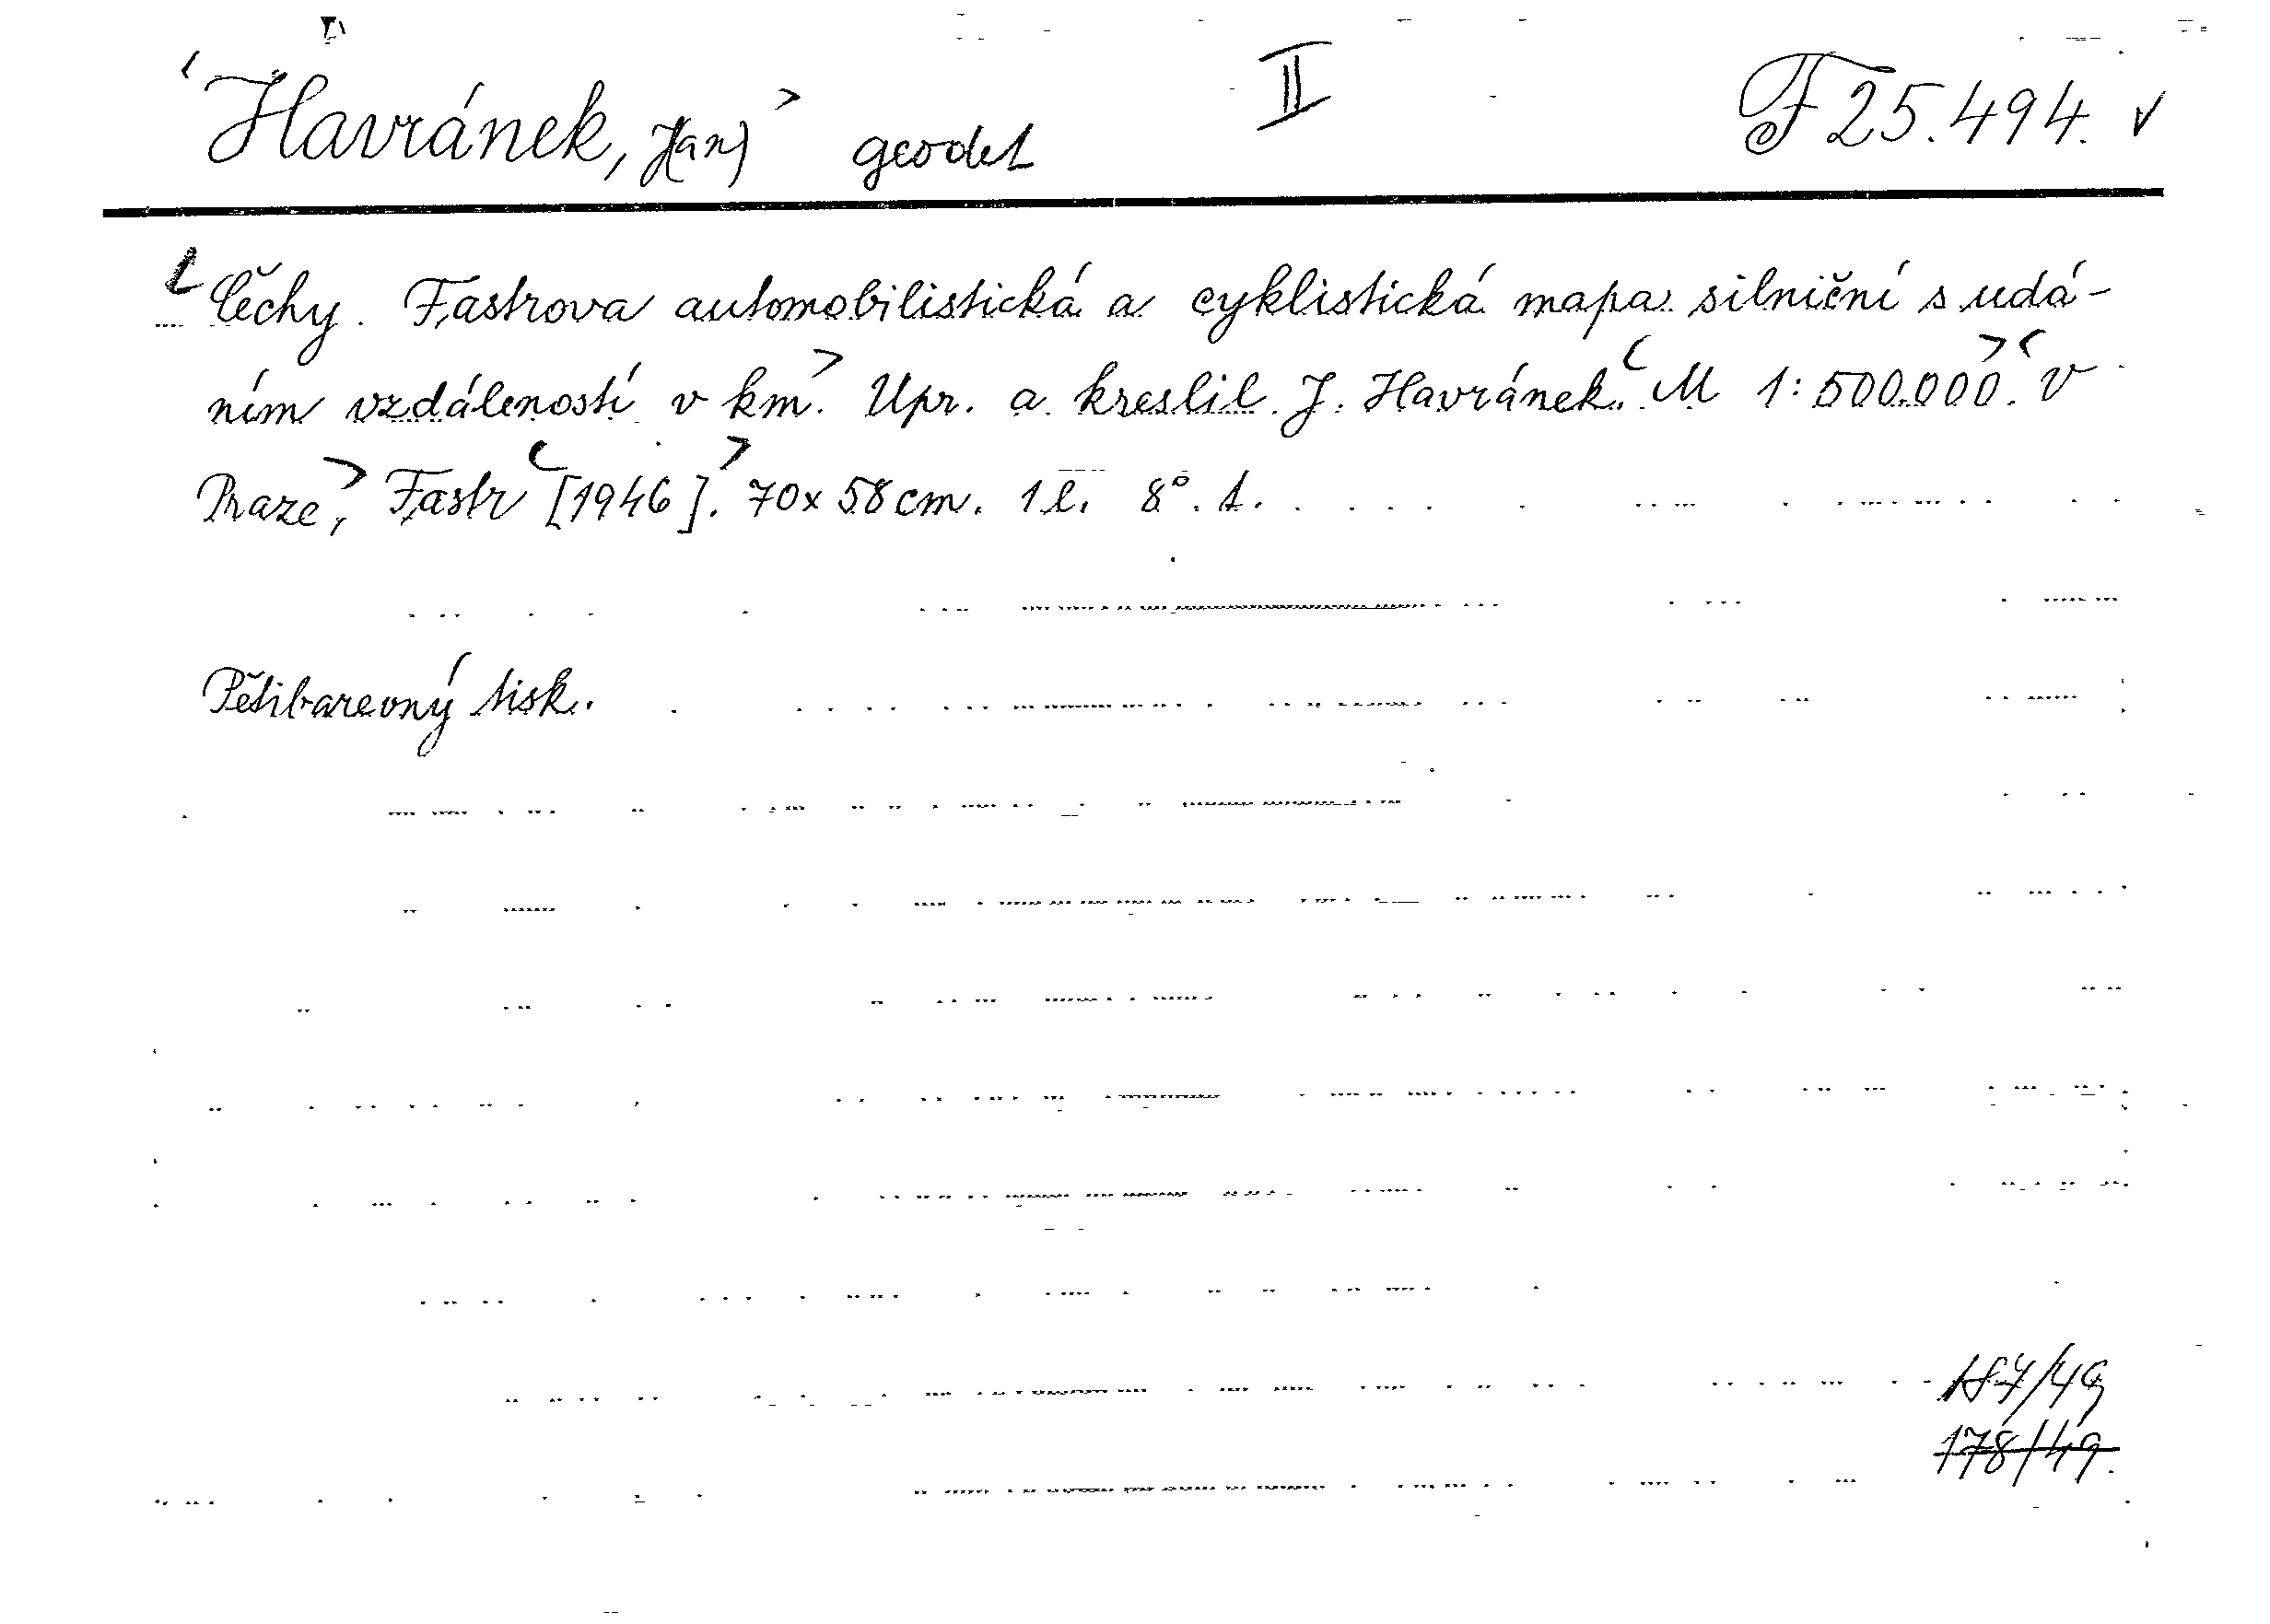 Havránek, J(an) geodet II F 25.494. ✓
Čechy. Fastrova automobilistická a cyklistická mapa silniční s udá-
ním vzdáleností v km. Upr. a kreslil J. Havránek. M 1:500.000. V
Praze, Fastr [1946]. 70x58 cm. 1 l. 8°. t.
Pětibarevný tisk.
178/49.